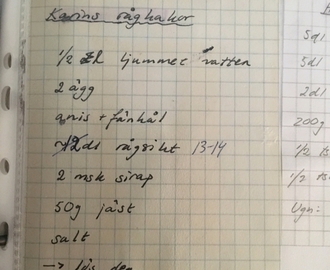 Karins rågkakor
1/2 l ljummet vatten
2 ägg
anis + fänkål
12dl rågsikt 13-14
2 msk sirap
50g jäst
salt
→ lös deg
5dl
5dl
2dl
200g
1/2 ts
1/2 ts
Ugn: